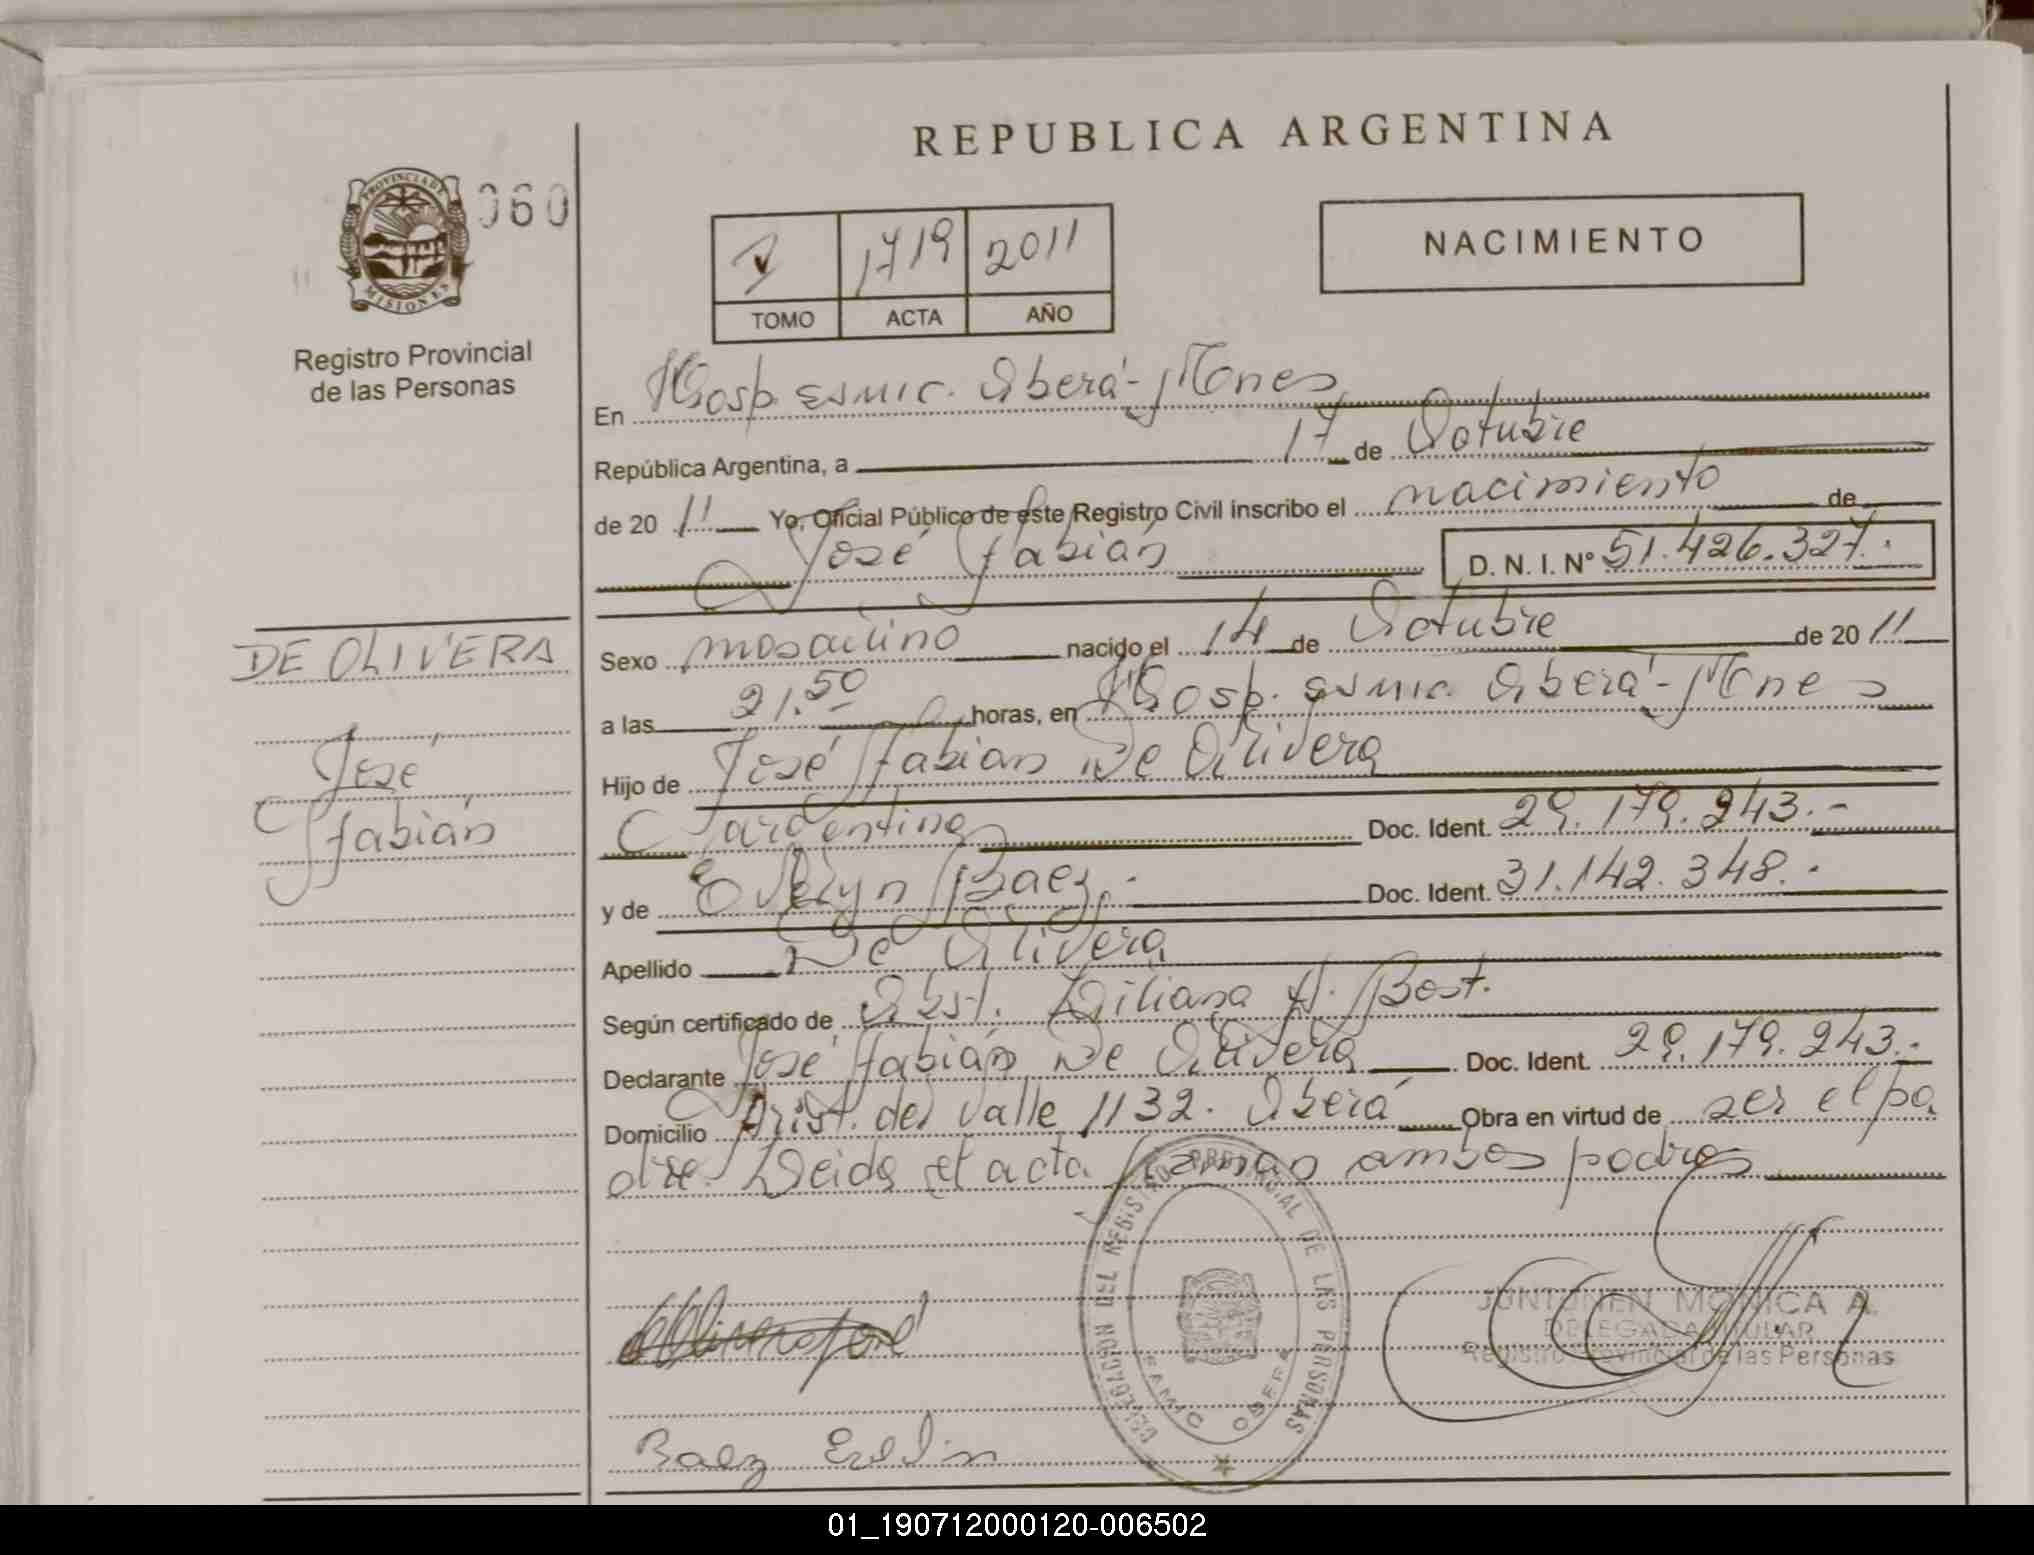 REPUBLICA ARGENTINA
PROVINCIA DE
MISIONES
060
Registro Provincial
de las Personas
1719 2011
TOMO ACTA AÑO
NACIMIENTO
En Hosp. SAMIC. Oberá - Mnes
República Argentina, a 17 de Octubre
de 20 11 Yo, Oficial Público de este Registro Civil inscribo el nacimiento de
José Fabián D. N. I. Nº 51.426.327.
DE OLIVERA
José
Fabián
Sexo masculino nacido el 14 de Octubre de 20 11
a las 21.50 horas, en Hosp. SAMIC. Oberá - Mnes
Hijo de José Fabián De Olivera
Argentino Doc. Ident. 29.179.243.-
y de Evelyn Baez.- Doc. Ident. 31.142.348.-
Apellido De Olivera
Según certificado de Obst. Liliana A. Bost.
Declarante José Fabián De Olivera Doc. Ident. 29.179.243.-
Domicilio Arist. del Valle 1132. Oberá Obra en virtud de ser el pa
dre. Leida el acta firman ambos padres
DELEGACION DEL REGISTRO PROVINCIAL DE LAS PERSONAS
SAMIC OBERA
JUNTUNEN MONICA A.
DELEGADA TITULAR
Registro Provincial de las Personas
Baez Evelin
01_190712000120-006502